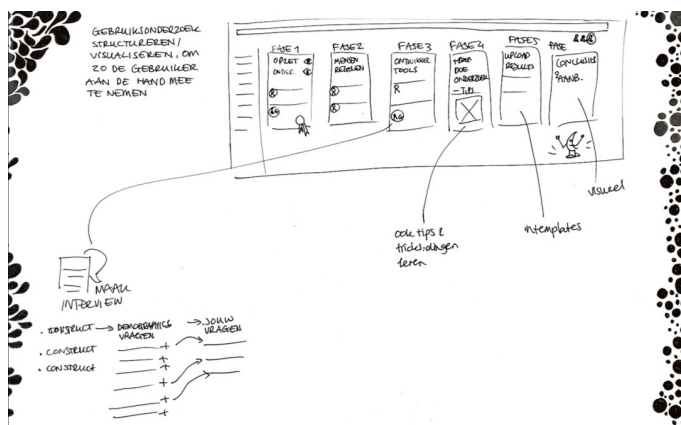 GEBRUIKSONDERZOEK
STRUCTUREREN/
VISUALISEREN, OM
ZO DE GEBRUIKER
AAN DE HAND MEE
TE NEMEN
FASE 1
OPZET
ONDER
R
RG
FASE 2
MENSEN
REGELEN
R
R
FASE 3
ONTWIKKEL
TOOLS
R
RG
FASE 4
TEAM
DOE
ONDERZOEK
- TIPS
FASE 5
UPLOAD
RESULTS
FASE
CONCLUSIES
& AANB.
visueel
ook tips &
tricks, dingen
leren
in templates
MAAK
INTERVIEW
• CONSTRUCT → DEMOGRAPHICS → JOUW
VRAGEN VRAGEN
• CONSTRUCT
• CONSTRUCT